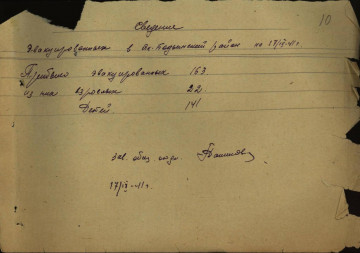 10
Сведения
эвакуированных в Ос. район на 17/IX-41 г.
Прибыло эвакуированных 163
из них взрослых 22
Детей 141
Зав. общ. отд.
17/IX-41 г.